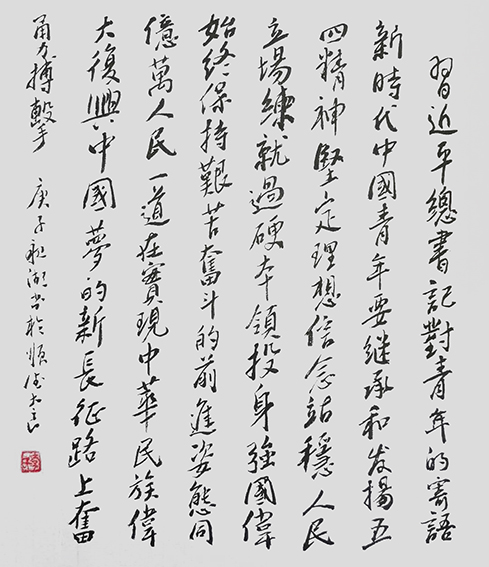 習近平總書記對青年的寄語
新時代中國青年要继承和发揚五
四精神堅定理想信念站穩人民
立場練就過硬本領投身強國偉
始终保持艱苦奮斗的前進姿態同
億萬人民一道在實現中華民族偉
大復興中國夢的新長征路上奮
勇搏擊 庚子 湖书於顺德大良